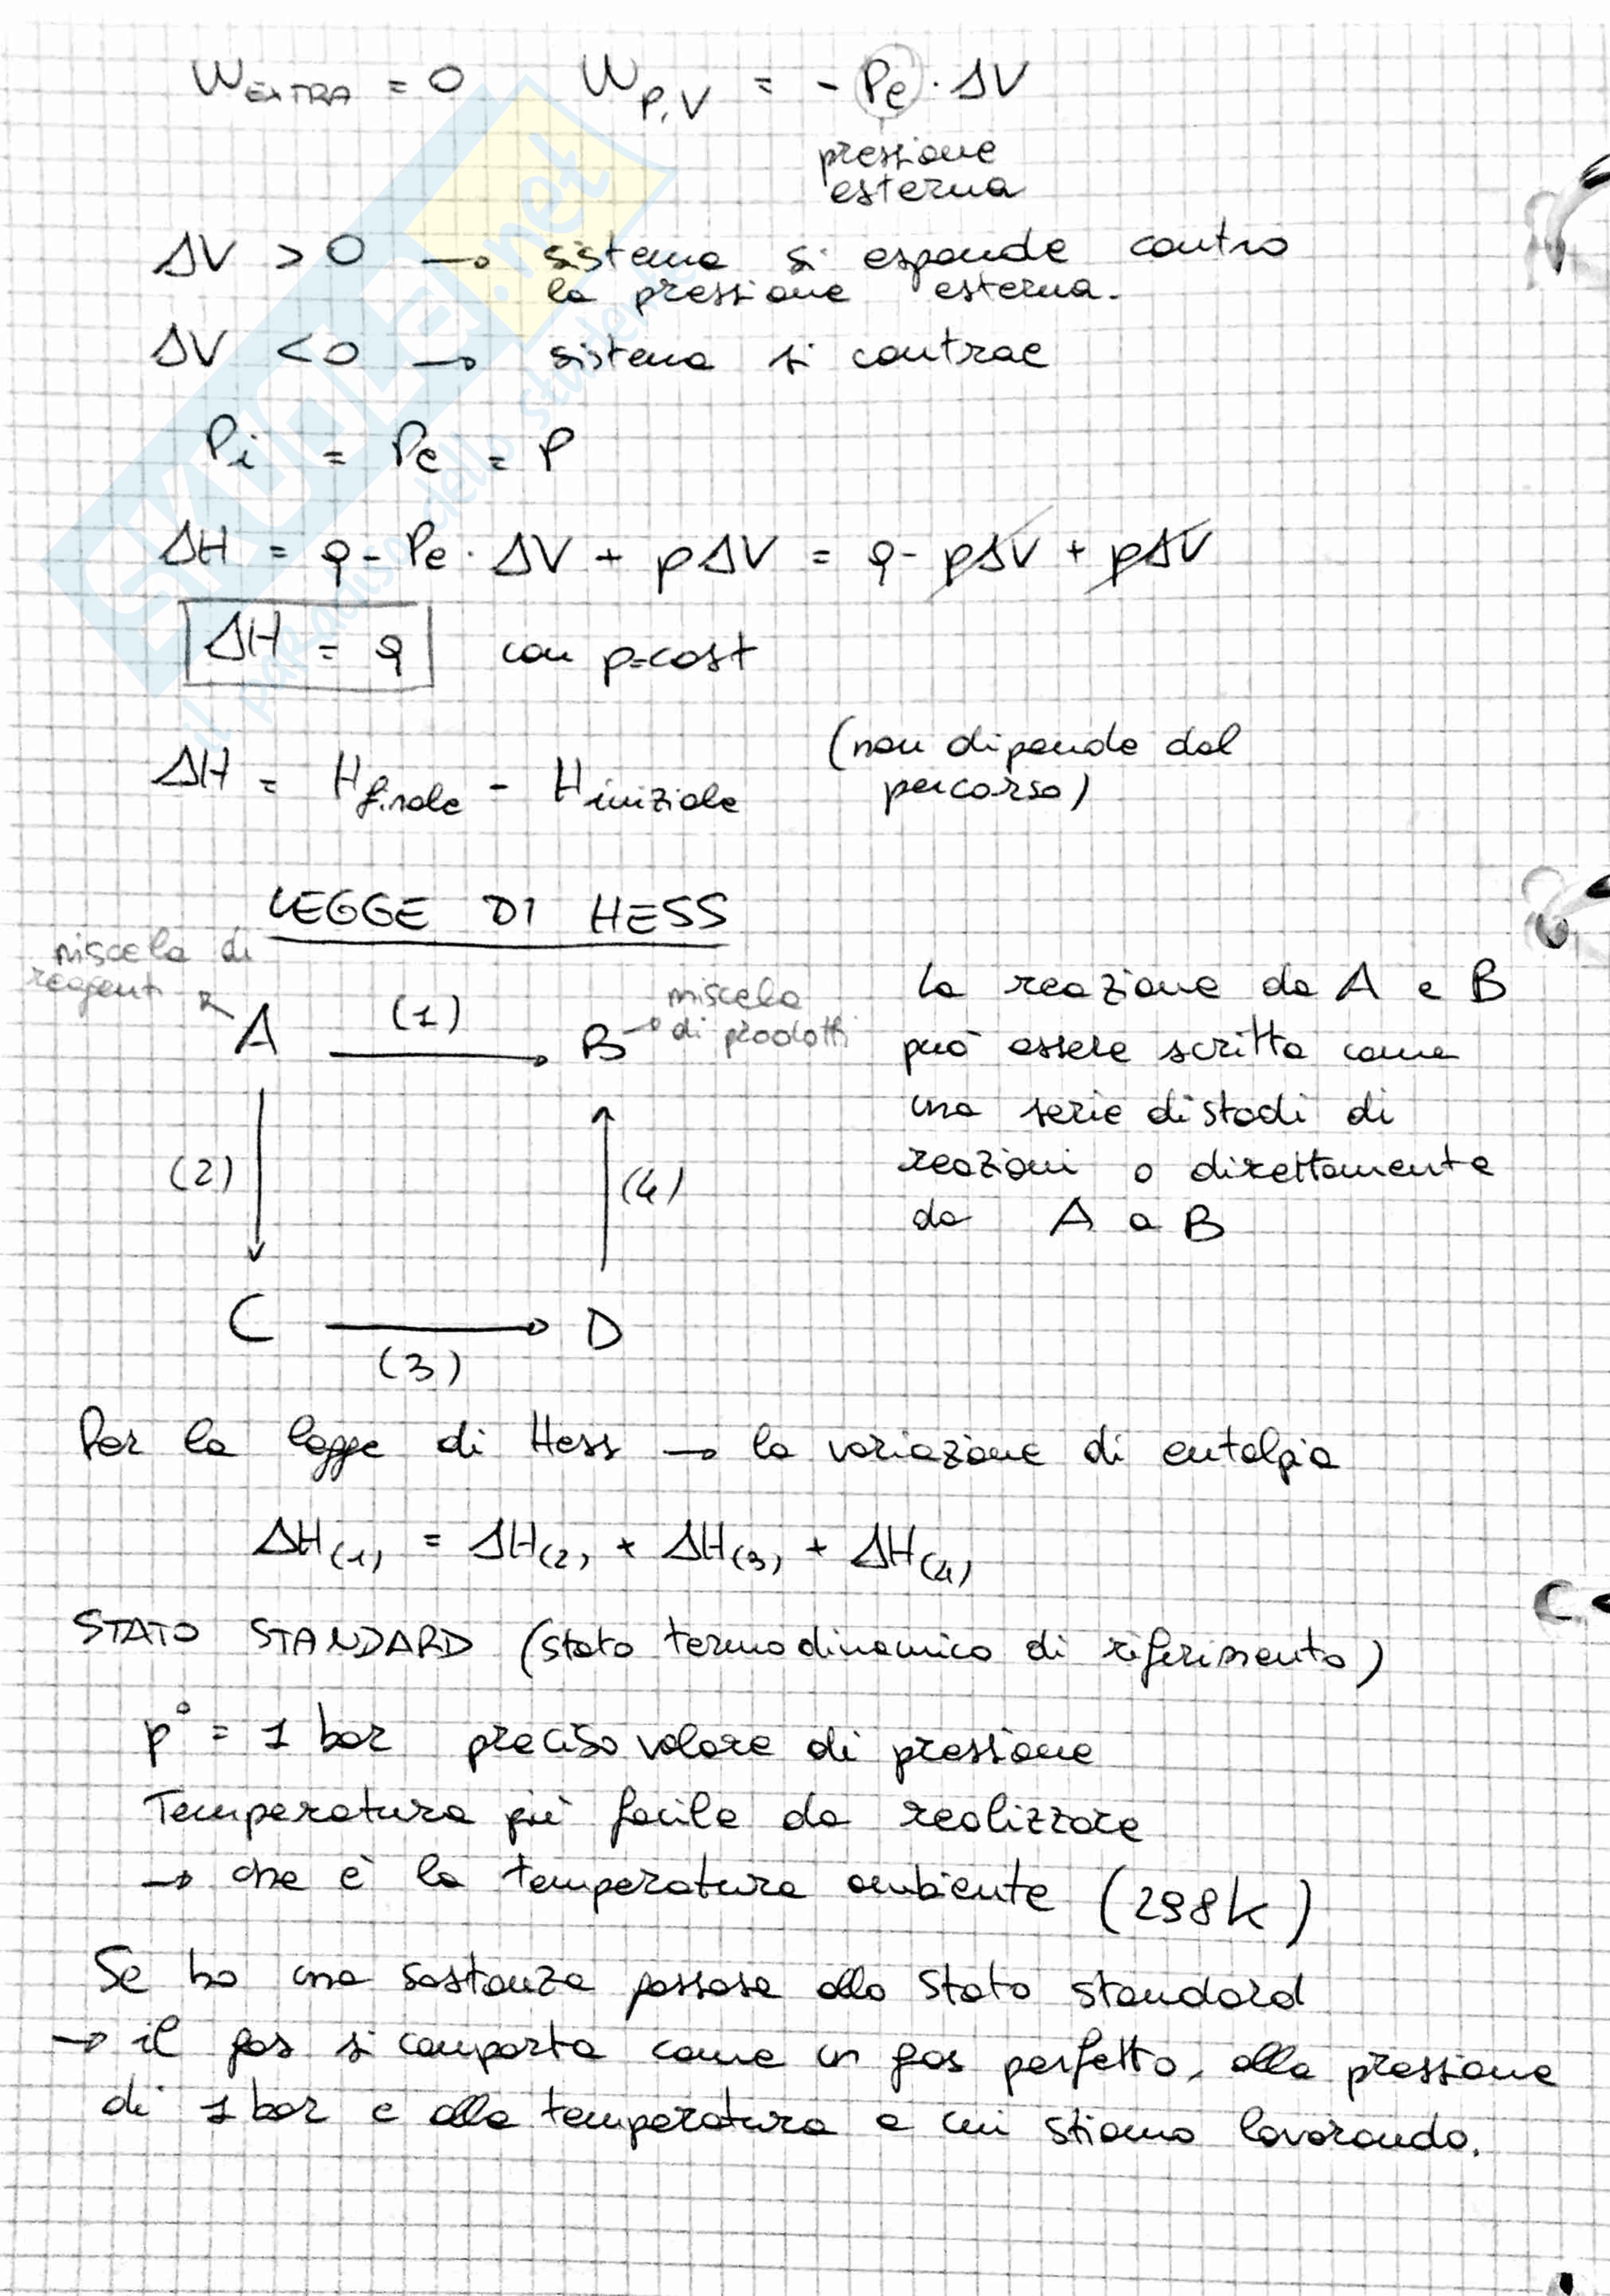 W EXTRA = 0 W P,V = - Pe · ΔV
pressione
esterna
ΔV > 0 → sistema si espande contro
la pressione esterna.
ΔV < 0 → sistema si contrae
Pi = Pe = P
ΔH = q - Pe · ΔV + pΔV = q - pΔV + pΔV
ΔH = q con p=cost
ΔH = H finale - H iniziale (non dipende dal
percorso)
LEGGE DI HESS
miscela di
reagenti
A (1) B
miscela
di prodotti
(2) (4)
C D
(3)
La reazione da A e B
può essere scritta come
una serie di stadi di
reazioni o direttamente
da A a B
Per la legge di Hess → la variazione di entalpia
ΔH(1) = ΔH(2) + ΔH(3) + ΔH(4)
STATO STANDARD (stato termodinamico di riferimento)
p° = 1 bar preciso valore di pressione
Temperatura più facile da realizzare
→ che è la temperatura ambiente (298k)
Se ho una sostanza gassosa allo stato standard
→ il gas si comporta come un gas perfetto, alla pressione
di 1 bar e alla temperatura a cui stiamo lavorando.
SKUOLA.net
il paradiso dello studente